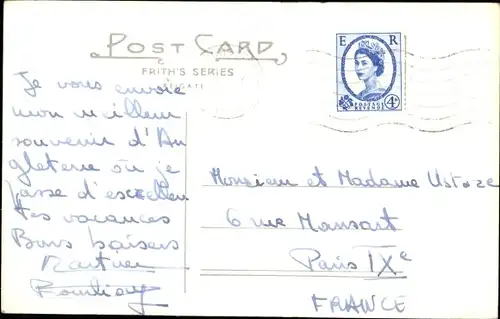 POST CARD
FRITH'S SERIES
E R
4D
POSTAGE
REVENUE
Je vous envoie
mon meilleur
souvenir d'An
gleterre où je
passe d'excellen
tes vacances
Bons baisers
Monsieur et Madame
6 rue Mansart
Paris IXe
FRANCE